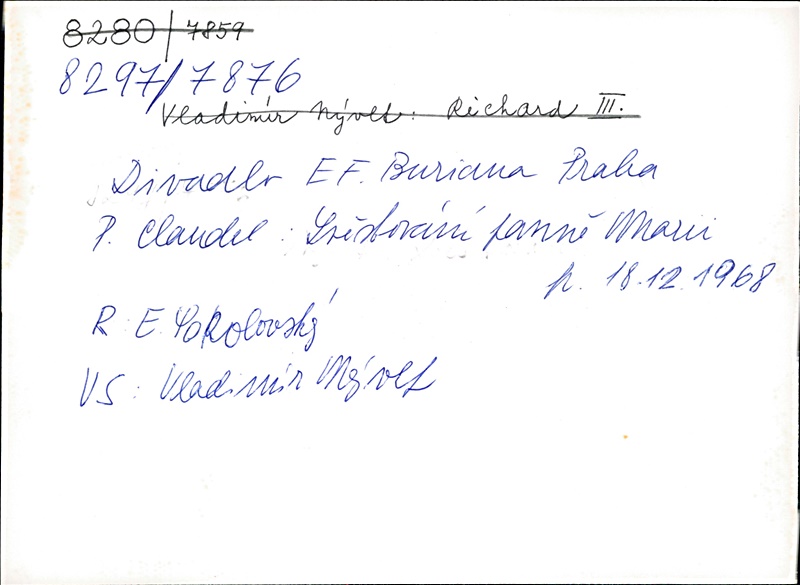 8280/7859
8297/7876
Vladimír Nývlt: Richard III.
Divadlo E F. Buriana Praha
P. Claudel: Zvěstování panně Marii
p. 18.12.1968
R: E Sokolovský
VS: Vladimír Nývlt